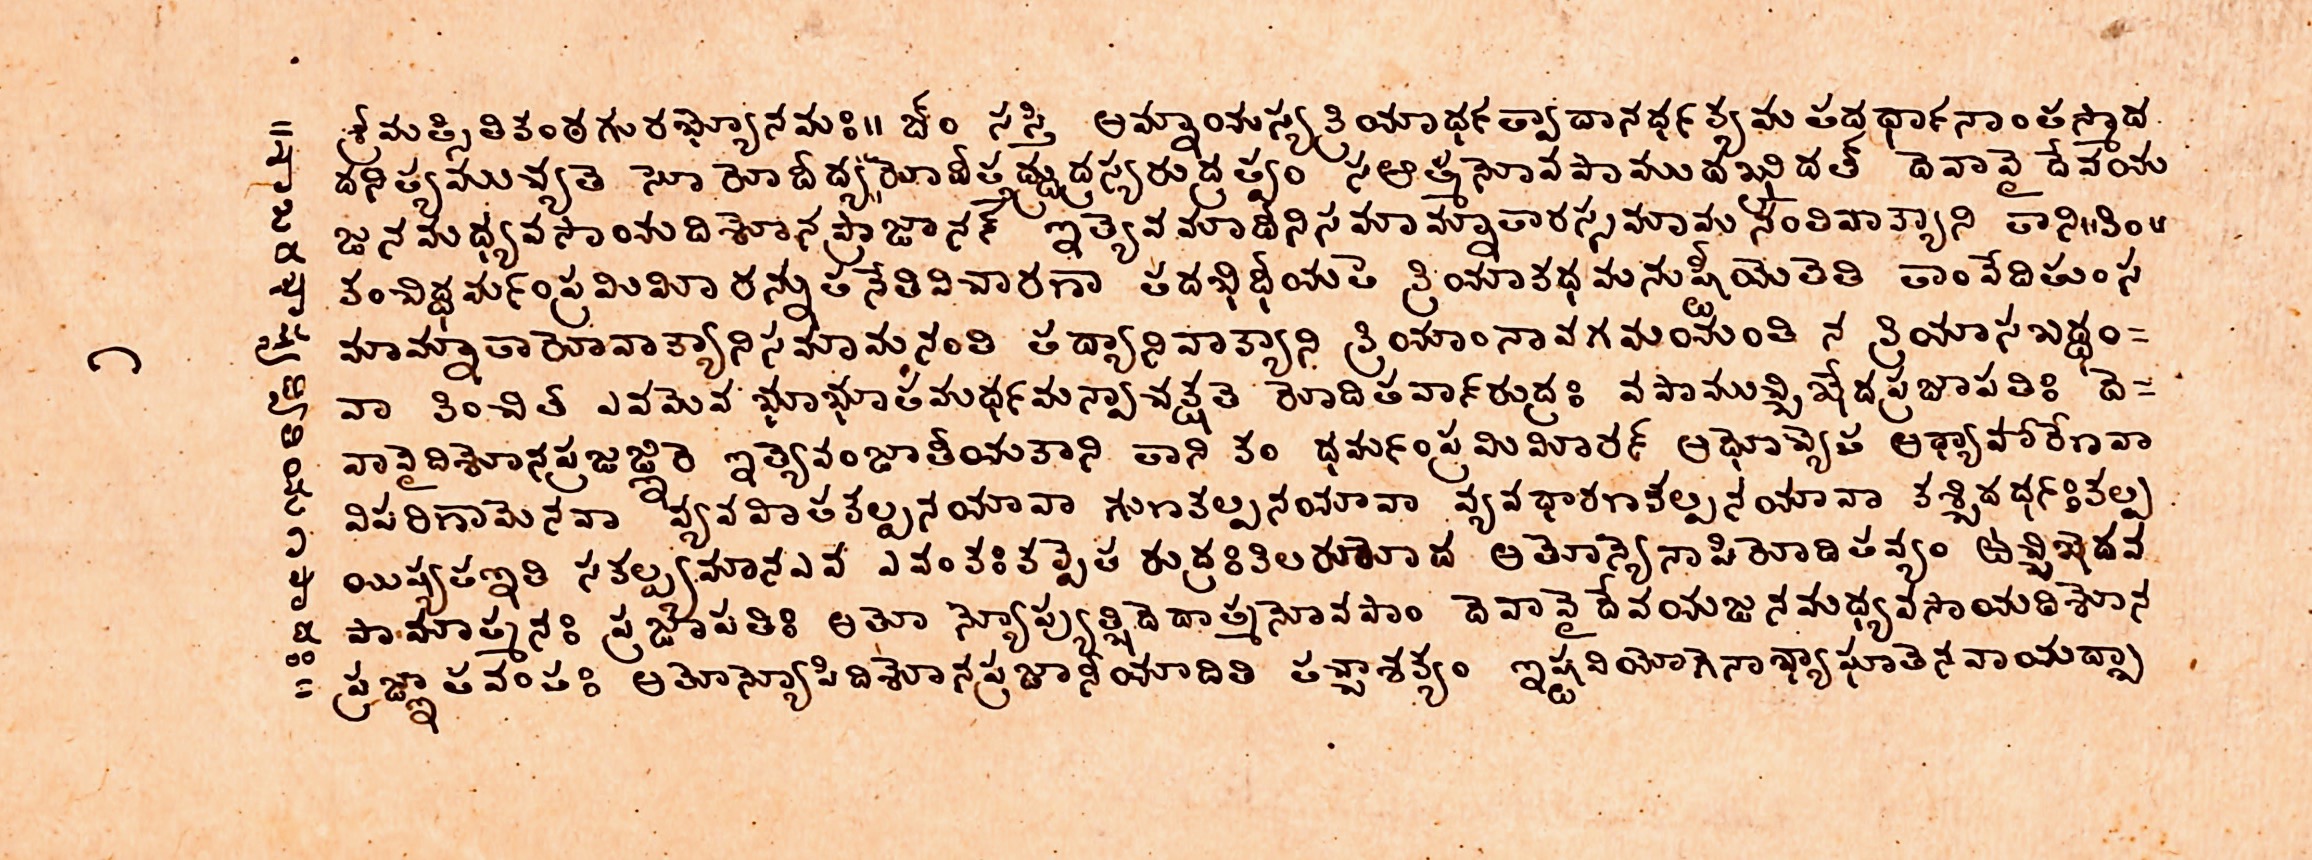 శ్రీమత్సితికంఠగురభ్యోనమః॥ ఓం స్వస్తి ఆమ్నాయస్యక్రియార్థత్వాదానర్థక్యమతదర్థానాంతస్మాద
దనిత్యముచ్యతె సోరోదీద్యదరోదీత్తద్రుద్రస్యరుద్రత్వం సఆత్మనోవపాముదఖ్ఖిదత్ దెవావై దేవయ
జనమధ్యవసాయదిశోనప్రాజానన్ ఇత్యెవమాదీనిసమామ్నాతారస్సమామనంతివాక్యాని తాని॥కిం॥
కంచిద్ధర్మంప్రమిమీరన్నుతనేతివిచారణా తదభిధీయతె క్రియాకథమనుష్ఠీయెతెతి తాంవేదితుంస
మామ్నాతారోవాక్యానిసమామనంతి తద్యానివాక్యాని క్రియాంనావగమయంతి న క్రియాసబద్ధం=
వా కించిత్ ఎవమెవ భూభూతమర్థమన్వాచక్షతె రోదితవాన్రుద్రః వపాముచ్చిఖేదప్రజాపతిః దె=
వావైదిశోనప్రజజ్ఞిరె ఇత్యెవంజాతీయకాని తాని కం ధర్మంప్రమిమీరన్ అథోచ్యెత అధ్యాహారేణవా
విపరిణామెనవా వ్యవహితకల్పనయావా గుణకల్పనయావా వ్యవధారణకల్పనయావా కశ్చిదర్థఃకల్ప
యిష్యతఇతి సకల్ప్యమానఎవ ఎవంకఃకల్పెత రుద్రఃకిలరురోద అతోన్యెనాపిరోదితవ్యం ఉచ్చిఖెదవ
పామాత్మనః ప్రజాపతిః అతో న్యోప్యుత్ఖిదెదాత్మనోవపాం దెవావై దేవయజనమధ్యవసాయదిశోన
ప్రజ్ఞాతవంతః అతోన్యోపిదిశోనప్రజానీయాదితి తచ్చాశక్యం ఇష్టవియోగెనాభ్యాఘాతెనవాయద్బా